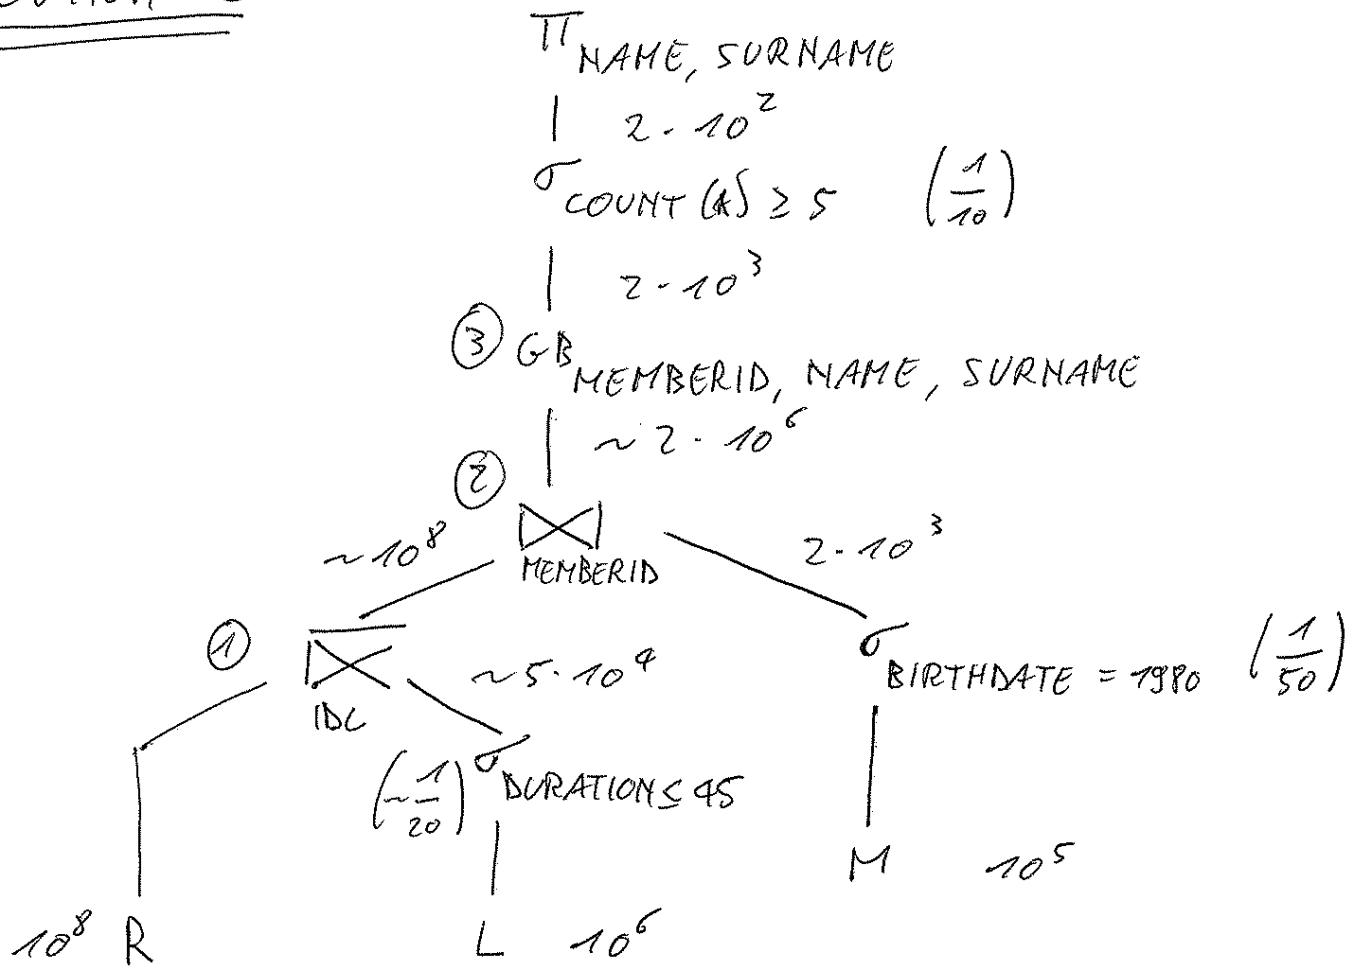 π NAME, SURNAME
2 · 10²
σ COUNT(*) ≥ 5 (1/10)
2 · 10³
③ GB MEMBERID, NAME, SURNAME
~ 2 · 10⁶
②
~10⁸ ⋈ MEMBERID 2 · 10³
① ⋈ IDL ~5 · 10⁴
σ BIRTHDATE = 1980 (1/50)
(~1/20) σ DURATION ≤ 45
M 10⁵
10⁸ R L 10⁶